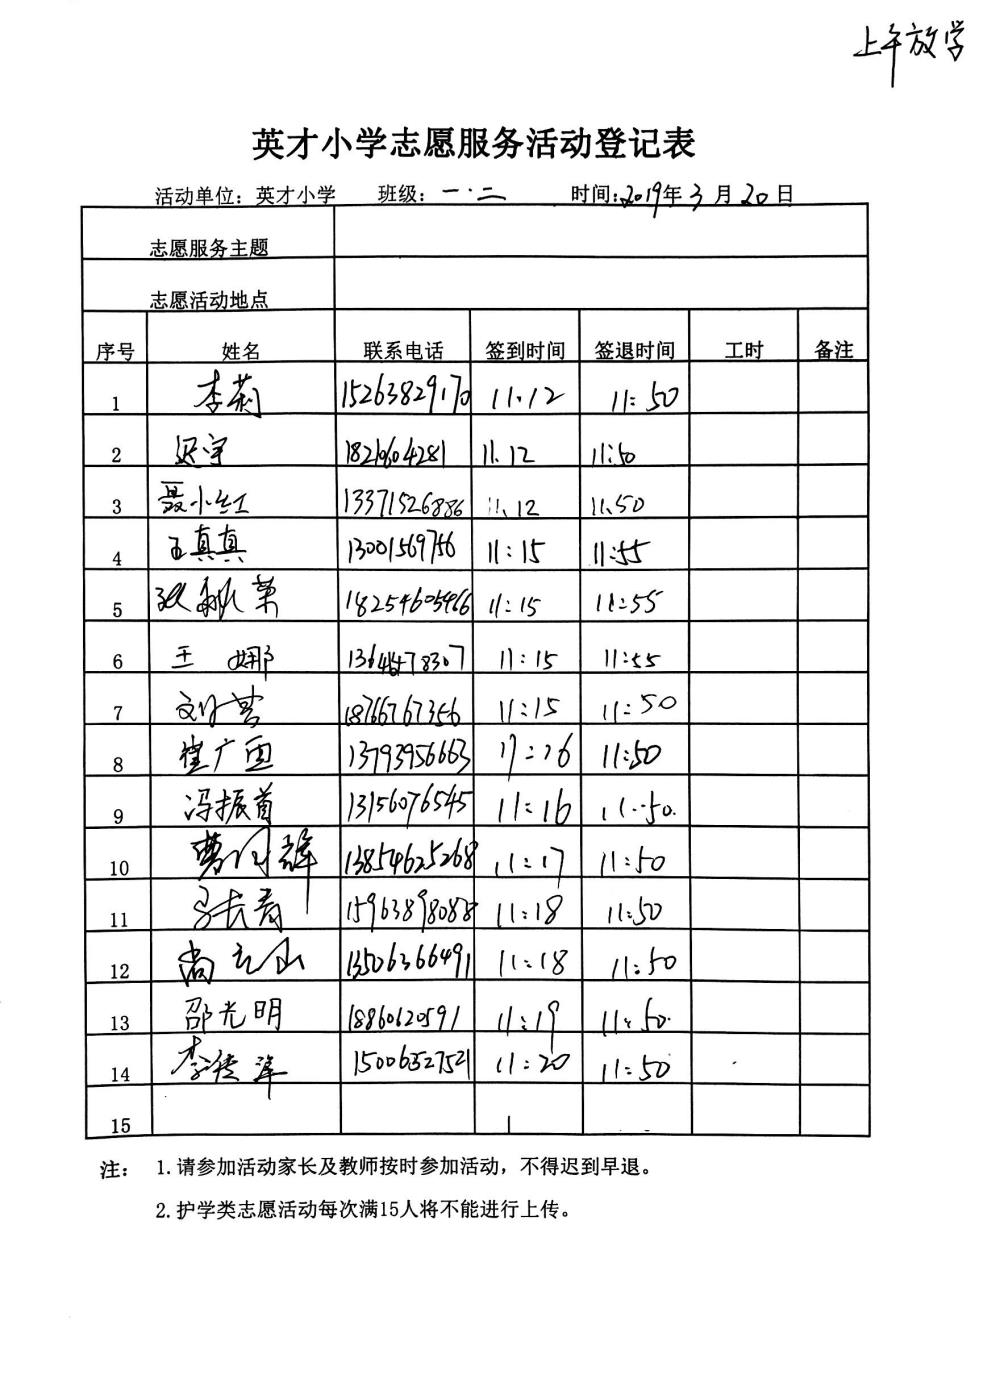 上午放学
英才小学志愿服务活动登记表
活动单位：英才小学 班级：一·二 时间：2019年3月20日
志愿服务主题
志愿活动地点
序号 姓名 联系电话 签到时间 签退时间 工时 备注
1 李莉 15263829170 11:12 11:50
2 迟宇 11.12 11:50
3 聂小红 13371526886 11.12 11.50
4 王真真 13001569756 11:15 11:55
5 18254605466 11:15 11:55
6 王娜 11:15 11:55
7 18766767356 11:15 11:50
8 崔广田 13793956663 11:16 11:50
9 冯振首 13156076545 11:16 11:50.
10 13854625268 11:17 11:50
11 15963898088 11:18 11:50
12 尚立山 13506366491 11:18 11:50
13 邵光明 18860620591 11:19 11:50.
14 15006527521 11:20 11:50
15
注： 1.请参加活动家长及教师按时参加活动，不得迟到早退。
2.护学类志愿活动每次满15人将不能进行上传。